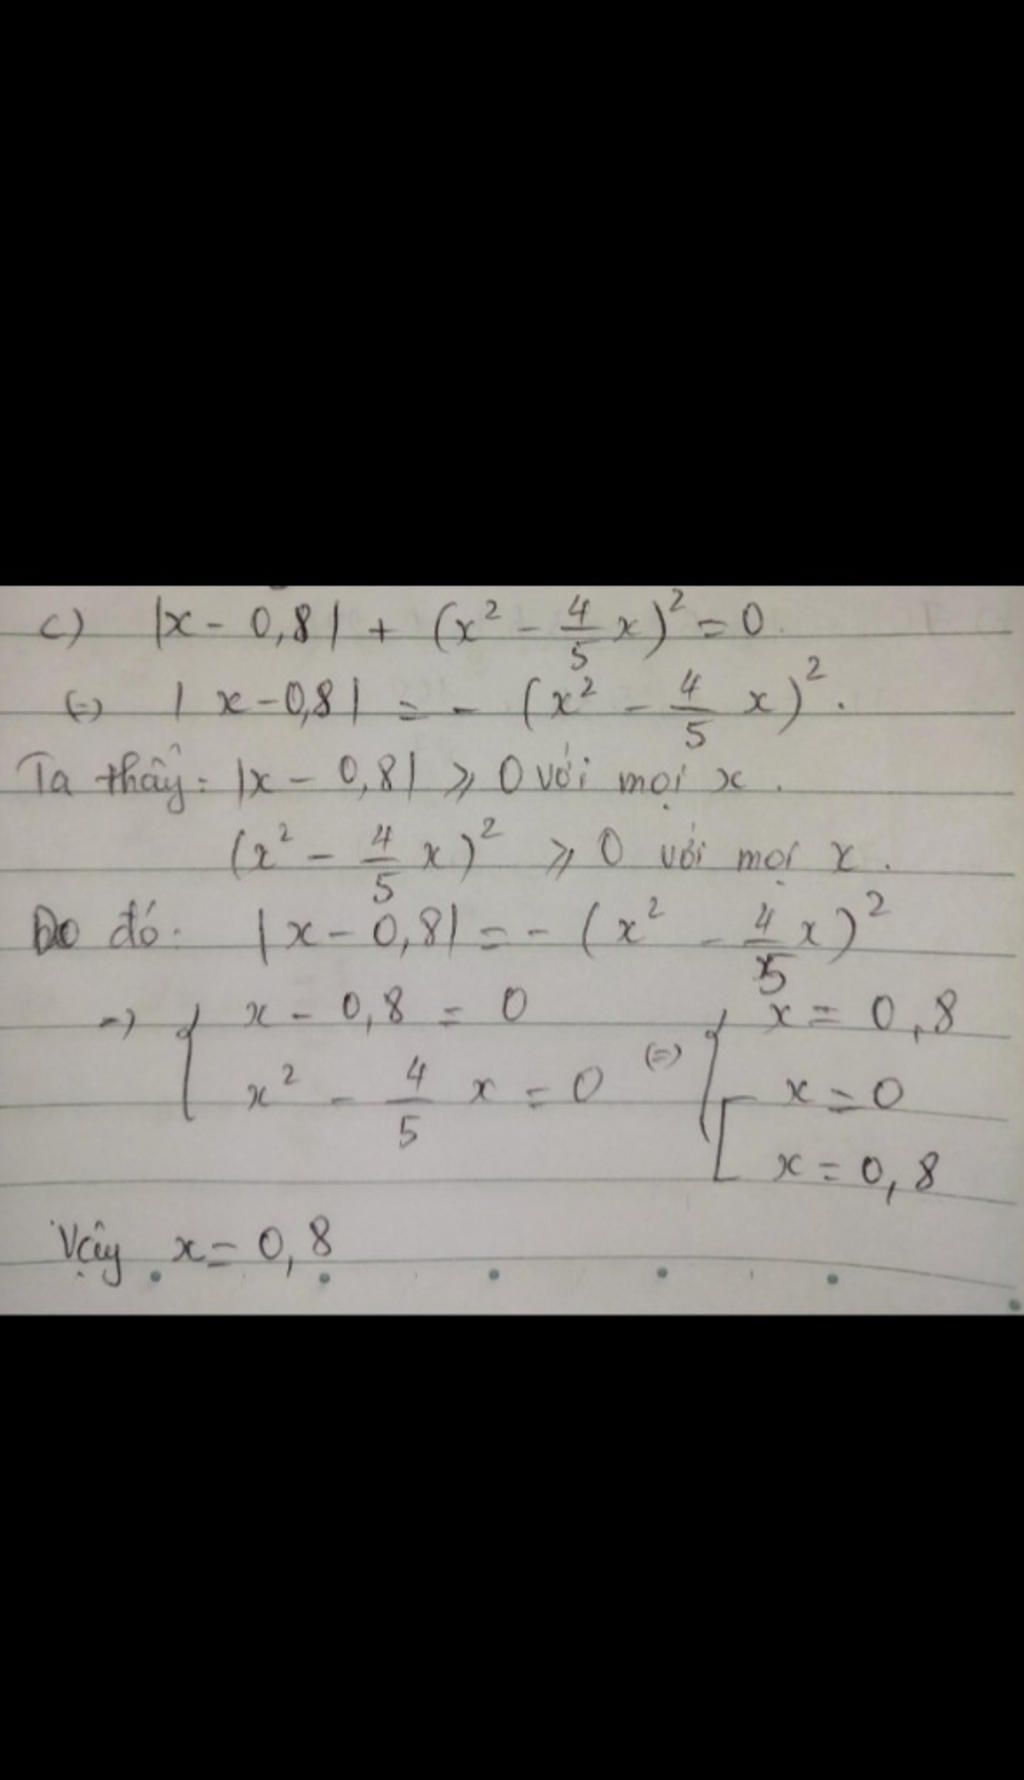 c) |x - 0,8| + (x² - 4/5 x)² = 0.
(=) | x - 0,8| = - (x² - 4/5 x)².
Ta thấy: |x - 0,8| ⩾ 0 với mọi x.
(x² - 4/5 x)² ⩾ 0 với mọi x.
Do đó: |x - 0,8| = - (x² - 4/5 x)²
=) { x - 0,8 = 0 (=) { x = 0,8
x² - 4/5 x = 0 [ x = 0
x = 0,8
Vậy x = 0,8